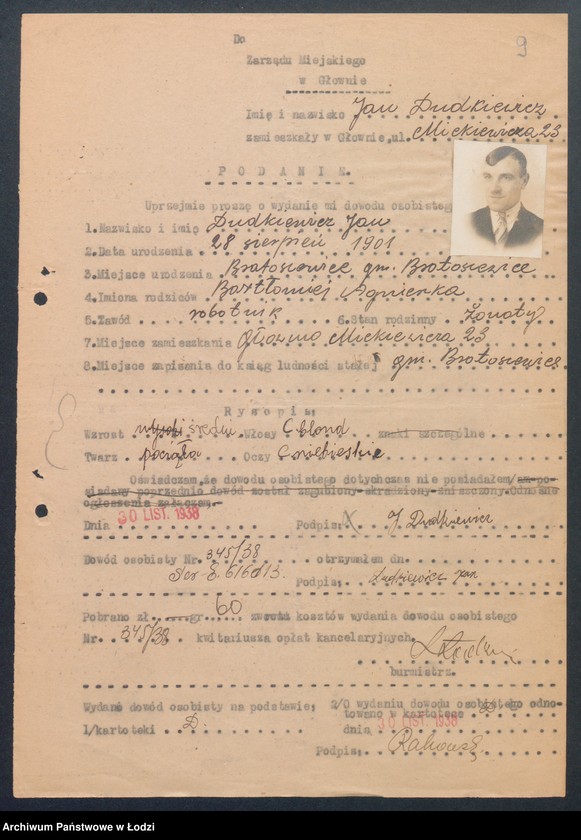 9
Do
Zarządu Miejskiego
w Głownie
Imię i nazwisko Jan Dudkiewicz
zamieszkały w Głownie, ul. Mickiewicza 23
PODANIE.
Uprzejmie proszę o wydanie mi dowodu osobistego
1. Nazwisko i imię Dudkiewicz Jan
2. Data urodzenia 28 sierpień 1901
3. Miejsce urodzenia Bratoszewice gm. Bratoszewice
4. Imiona rodziców Bartłomiej Agnieszka
5. Zawód robotnik 6. Stan rodzinny żonaty
7. Miejsce zamieszkania Głowno Mickiewicza 23
8. Miejsce zapisania do ksiąg ludności stałej gm. Bratoszewice
Rysopis:
Wzrost średni Włosy C blond znaki szczególne
Twarz pociągła Oczy C. niebieskie
Oświadczam, że dowodu osobistego dotychczas nie posiadałem/am po-
siadany poprzednio dowód został zagubiony-skradziony-zniszczony. Odnośne
ogłoszenie załączam.
Dnia 30 LIST. 1938 Podpis; X J. Dudkiewicz
Dowód osobisty Nr. 345/38 otrzymałem dn.
Ser. E. 616013. Podpis; Dudkiewicz Jan
Pobrano zł. gr. 60 zwrotu kosztów wydania dowodu osobistego
Nr. 345/38 kwitariusza opłat kancelaryjnych
burmistrz.
Wydano dowód osobisty na podstawie; 2/O wydaniu dowodu osobistego odno-
towano w kartotece
1/kartoteki D. dnia 30 LIST. 1938
Podpis;
Archiwum Państwowe w Łodzi